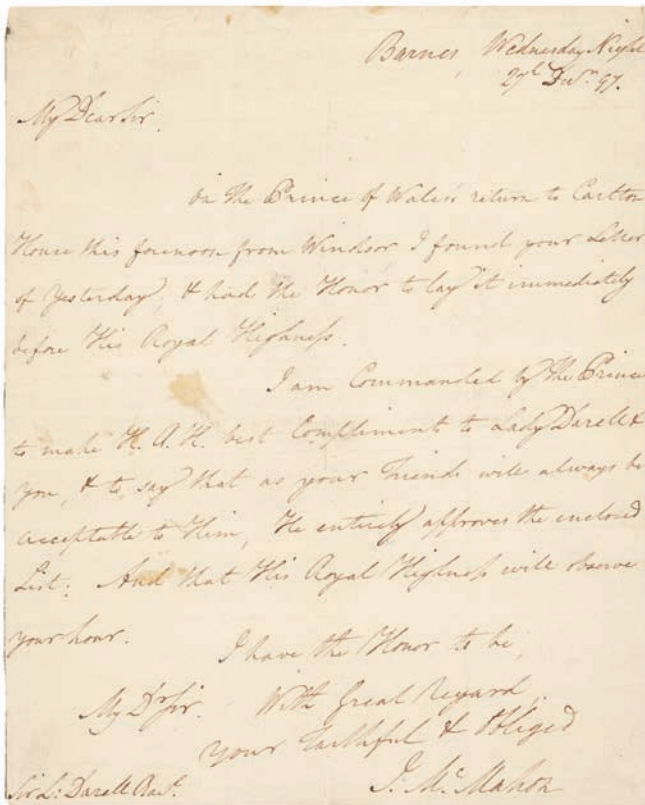 Barnes, Wednesday Night
27th Decr. 97.
My Dear Sir.
On the Prince of Wales's return to Carlton
House this forenoon from Windsor I found your Letter
of Yesterday, & had the Honor to lay it immediately
before His Royal Highness.
I am Commanded by the Prince
to make H. R. H. best Compliment to Lady Darell &
you, & to say that as your Friends will always be
acceptable to Him, He entirely approves the enclosed
List: And that His Royal Highness will observe
your hour.
I have the Honor to be,
My Dr Sir. With Great Regard,
your Faithful & Obliged
J. Mc Mahon
Sir L: Darell Bart.